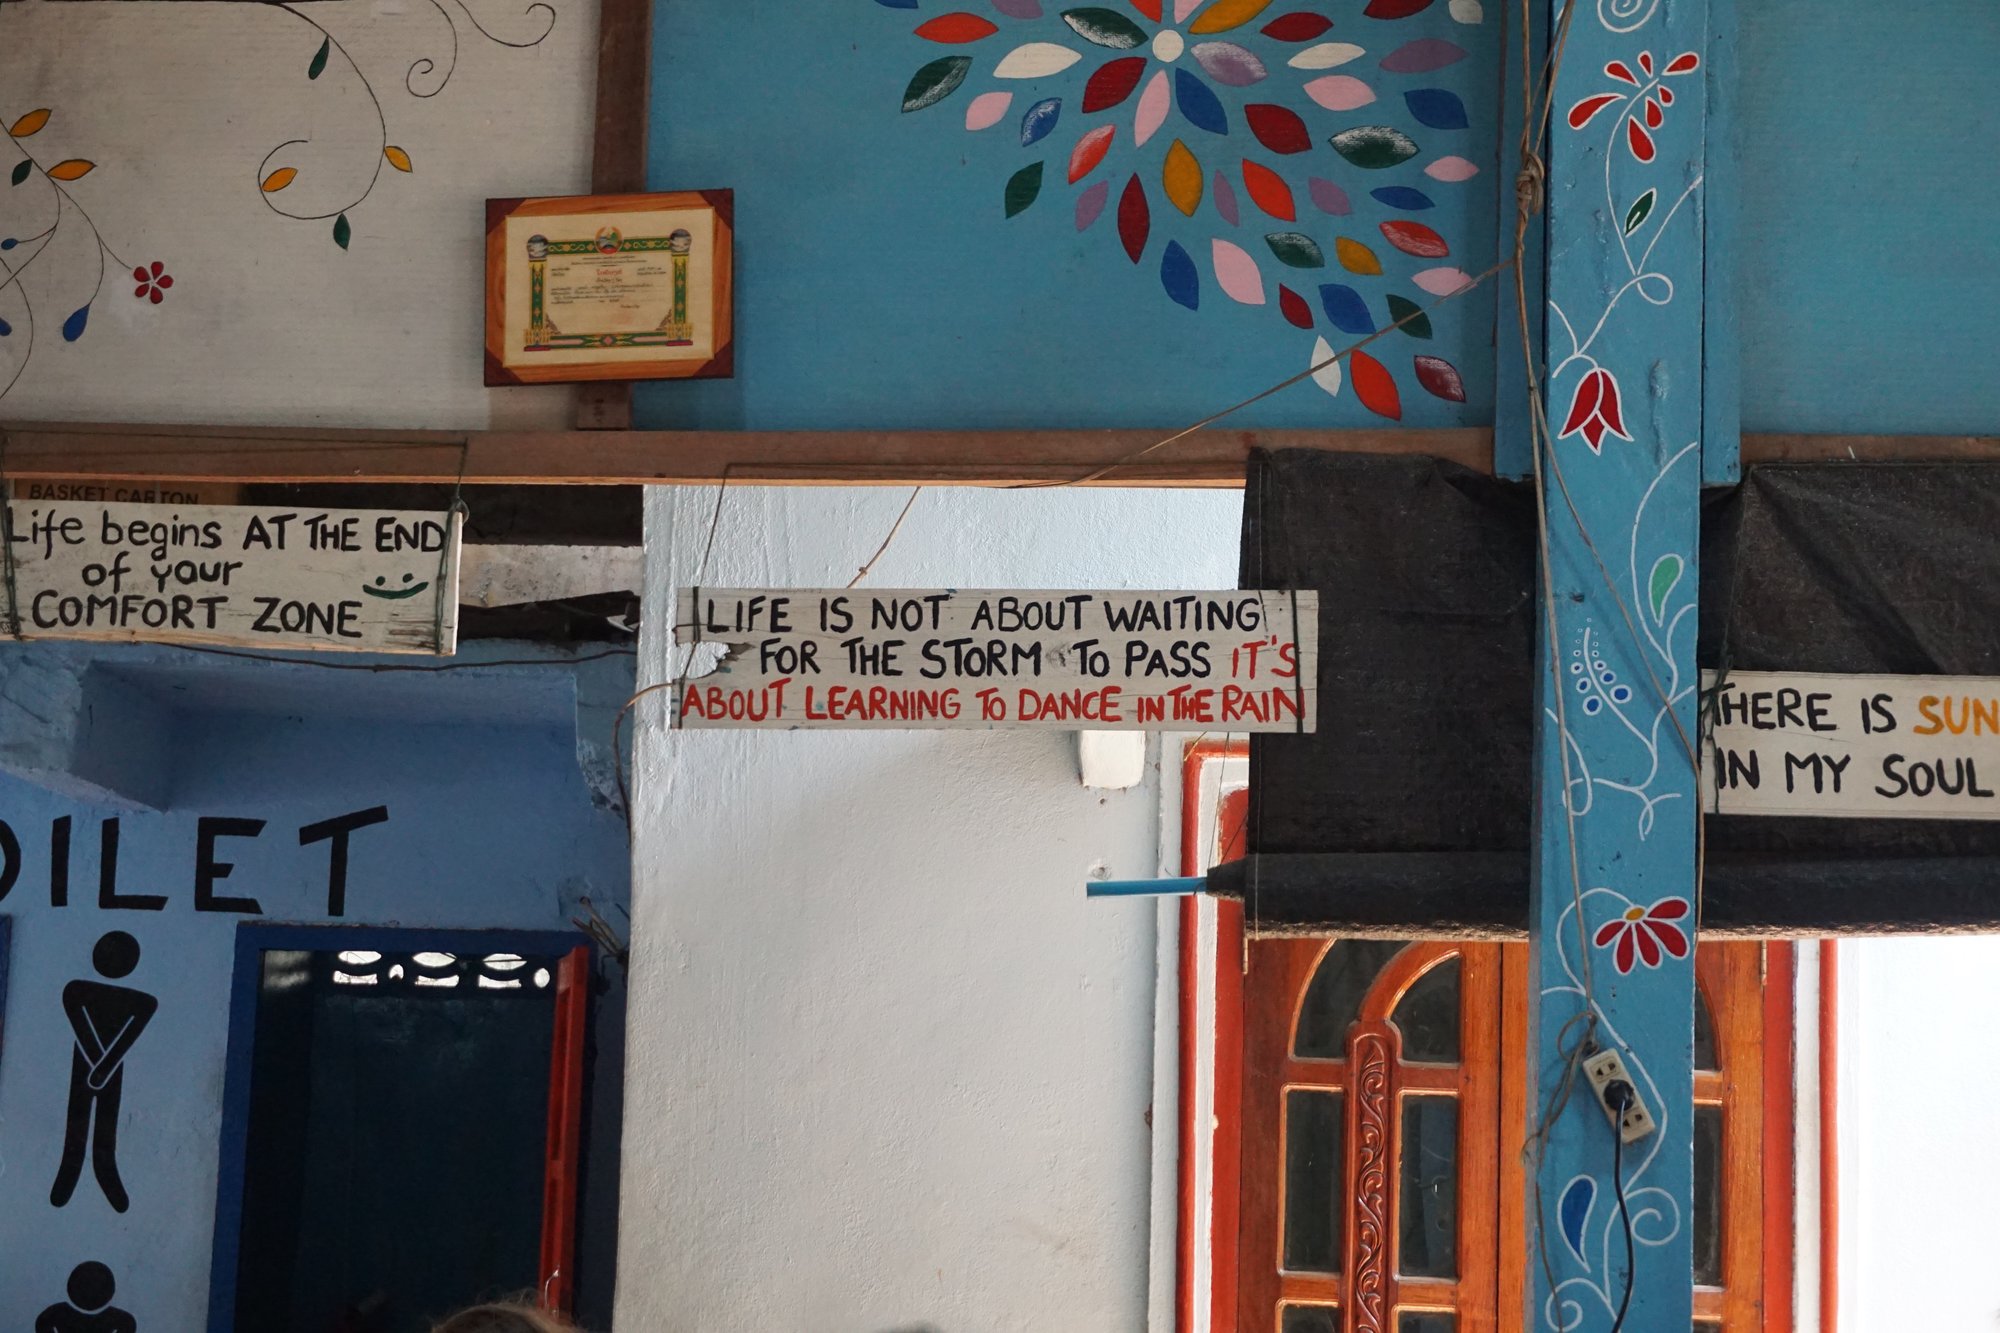 BASKET CARTON
Life begins AT THE END
of your
COMFORT ZONE
LIFE IS NOT ABOUT WAITING
FOR THE STORM TO PASS IT'S
ABOUT LEARNING TO DANCE IN THE RAIN
THERE IS SUN
IN MY SOUL
OILET